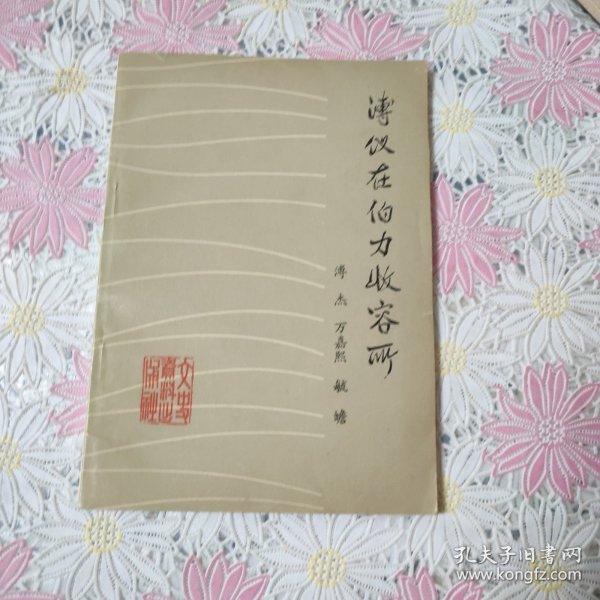 溥仪在伯力收容所
溥杰 万嘉熙 毓嶦
文史
资料选
孔夫子旧书网
www.kongfz.com